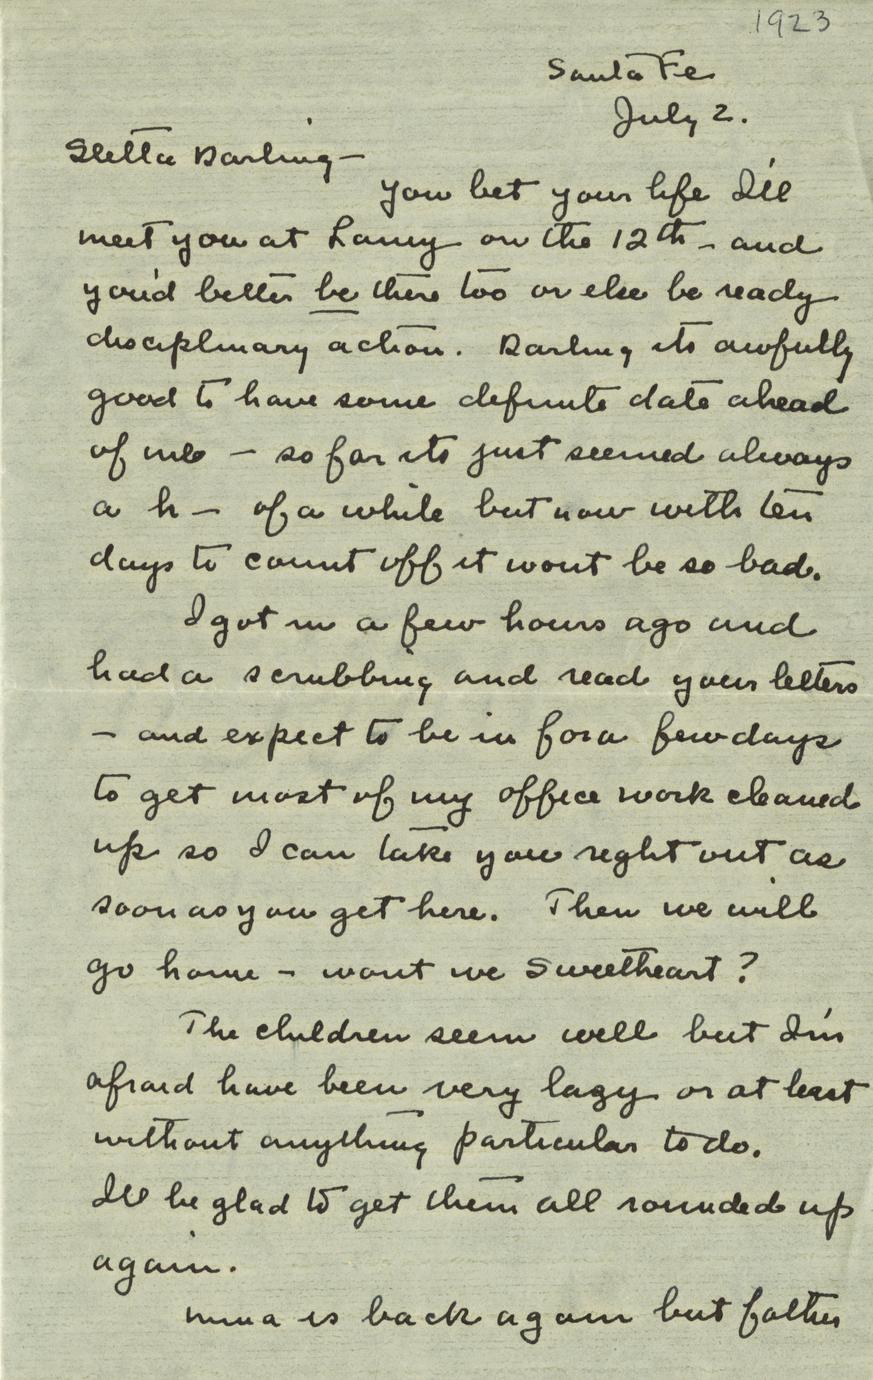 1923
Santa Fe
July 2.
Stetta Darling —
You bet your life I'll
meet you at Lamy on the 12th - and
you'd better be there too or else be ready
disciplinary action. Darling its awfully
good to have some definite date ahead
of me — so far its just seemed always
a h — of a while but now with ten
days to count off it wont be so bad.
I got in a few hours ago and
had a scrubbing and read your letters
— and expect to be in for a few days
to get most of my office work cleaned
up so I can take you right out as
soon as you get here. Then we will
go home - wont we Sweetheart?
The children seem well but I'm
afraid have been very lazy or at least
without anything particular to do.
I'll be glad to get them all rounded up
again.
is back again but father